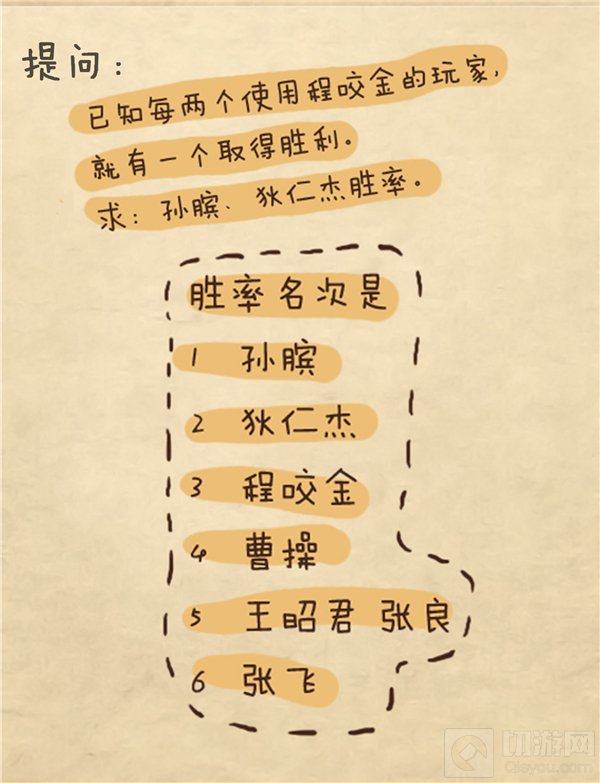 提问：
已知每两个使用程咬金的玩家，
就有一个取得胜利。
求：孙膑、狄仁杰胜率。
胜率名次是
1 孙膑
2 狄仁杰
3 程咬金
4 曹操
5 王昭君 张良
6 张飞
切游网
Qieyou.com